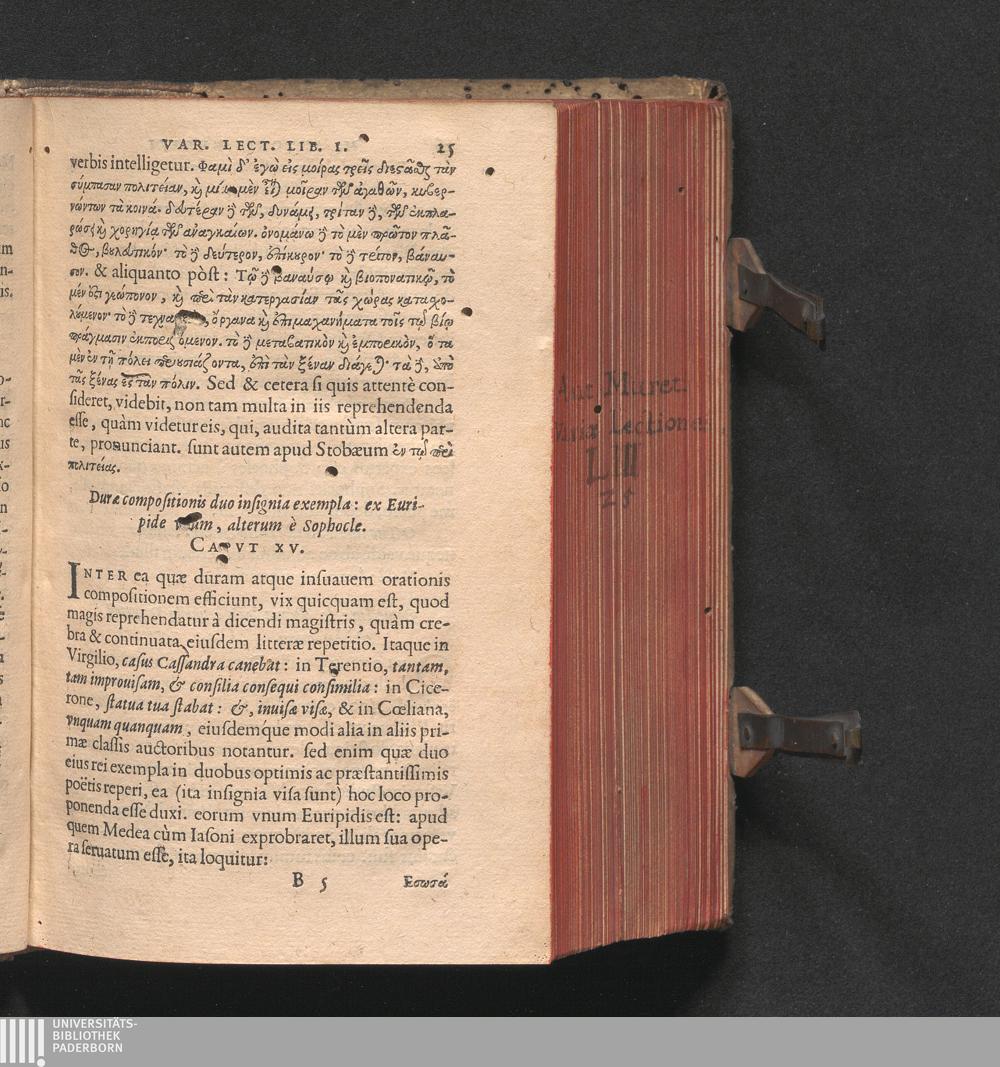 VAR. LECT. LIB. I. 25
verbis intelligetur. Φαμὶ δ' ἐγὼ εἰς μοίρας τρεῖς διεστᾶσθαι τὰν
σύμπασαν πολιτείαν, καὶ μίαν μὲν εἶ) μοῖραν τῶν ἀγαθῶν, κυβερ-
νώντων τὰ κοινά. δευτέραν δὲ τῶν, δυνάμει, τρίταν δὲ, τῶν ἐκπλα-
ρώσει καὶ χορηγία τῶν ἀναγκαίων. ὀνομάνω δὲ τὸ μὲν πρῶτον πλᾶ-
θος, βουλευτικόν· τὸ δὲ δεύτερον, ἐπίκουρον· τὸ δὲ τρίτον, βάναυ-
σον. & aliquanto pòst: Τῶ δὲ βαναύσῳ καὶ βιοπονατικῶ, τὸ
μὲν ἐστι γεώπονον, καὶ περὶ τὰν κατεργασίαν τᾶς χώρας καταχο-
λούμενον· τὸ δὲ τεχνα , ὄργανα καὶ ἐπιμαχανήματα τοῖς τῶ βίῳ
πράγμασιν ἐκποριζόμενον. τὸ δὲ μεταβατικὸν καὶ ἐμπορικὸν, ὃ τα
μὲν ἐν τῇ πόλει περουσιάζοντα, ἐπὶ τὰν ξέναν διάγε) · τὰ δὲ, ἀπὸ
τᾶς ξένας ἐς τὰν πόλιν. Sed & cetera si quis attentè con-
sideret, videbit, non tam multa in iis reprehendenda
esse, quàm videtur eis, qui, audita tantùm altera par-
te, pronunciant. sunt autem apud Stobæum ἐν τῷ περὶ
πολιτείας.
Duræ compositionis duo insignia exempla: ex Euri-
pide vnum, alterum è Sophocle.
CAPVT XV.
INTER ea quæ duram atque insuauem orationis
compositionem efficiunt, vix quicquam est, quod
magis reprehendatur à dicendi magistris, quàm cre-
bra & continuata eiusdem litteræ repetitio. Itaque in
Virgilio, casus Cassandra canebat: in Terentio, tantam,
tam improuisam, & consilia consequi consimilia: in Cice-
rone, statua tua stabat: &, inuisæ visæ, & in Cœliana,
vnquam quanquam, eiusdemque modi alia in aliis pri-
mæ classis auctoribus notantur. sed enim quæ duo
eius rei exempla in duobus optimis ac præstantissimis
poëtis reperi, ea (ita insignia visa sunt) hoc loco pro-
ponenda esse duxi. eorum vnum Euripidis est: apud
quem Medea cùm Iasoni exprobraret, illum sua ope-
ra seruatum esse, ita loquitur:
B 5 Εσωσά
Ant Muret.
Variæ Lectiones
LIII
25
UNIVERSITÄTS-
BIBLIOTHEK
PADERBORN